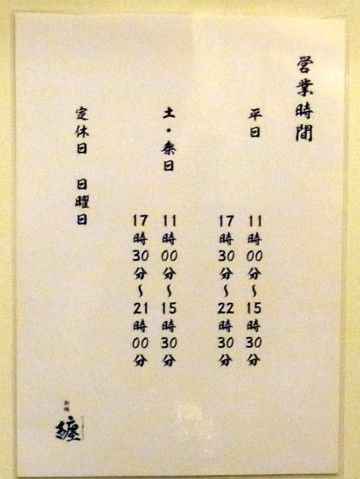 営業時間
平日 11時00分〜15時30分
17時30分〜22時30分
土・祭日 11時00分〜15時30分
17時30分〜21時00分
定休日 日曜日
新橋
纏